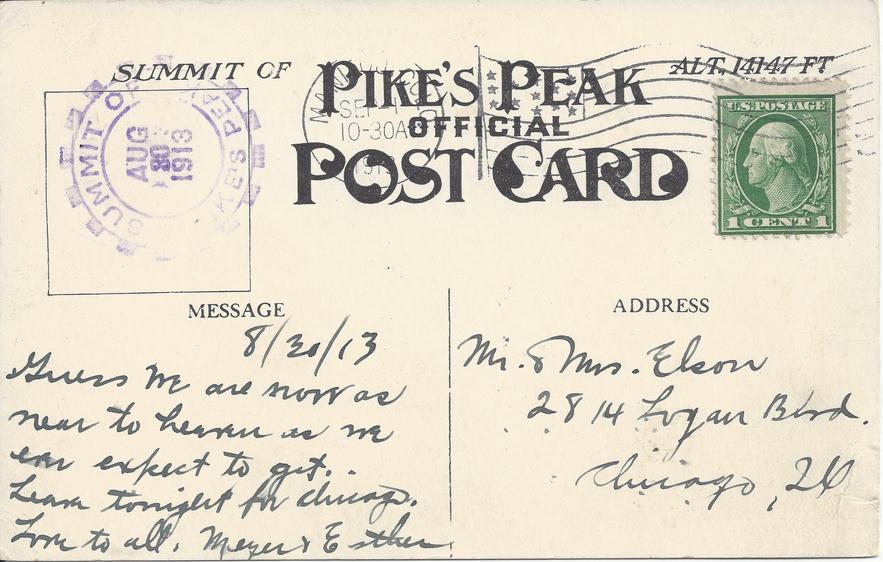 SUMMIT OF PIKE'S PEAK ALT. 14147 FT
OFFICIAL
POST CARD
SUMMIT OF PIKE'S PEAK
AUG
30
1913
MANITOU
SEP 1
10-30A
191
U.S. POSTAGE
1 CENT 1
MESSAGE
8/30/13
Guess we are now as
near to heaven as we
ever expect to get.
Leave tonight for Chicago.
Love to all. Meyer & Esther
ADDRESS
Mr. & Mrs. Elson
2814 Logan Blvd.
Chicago, Ill